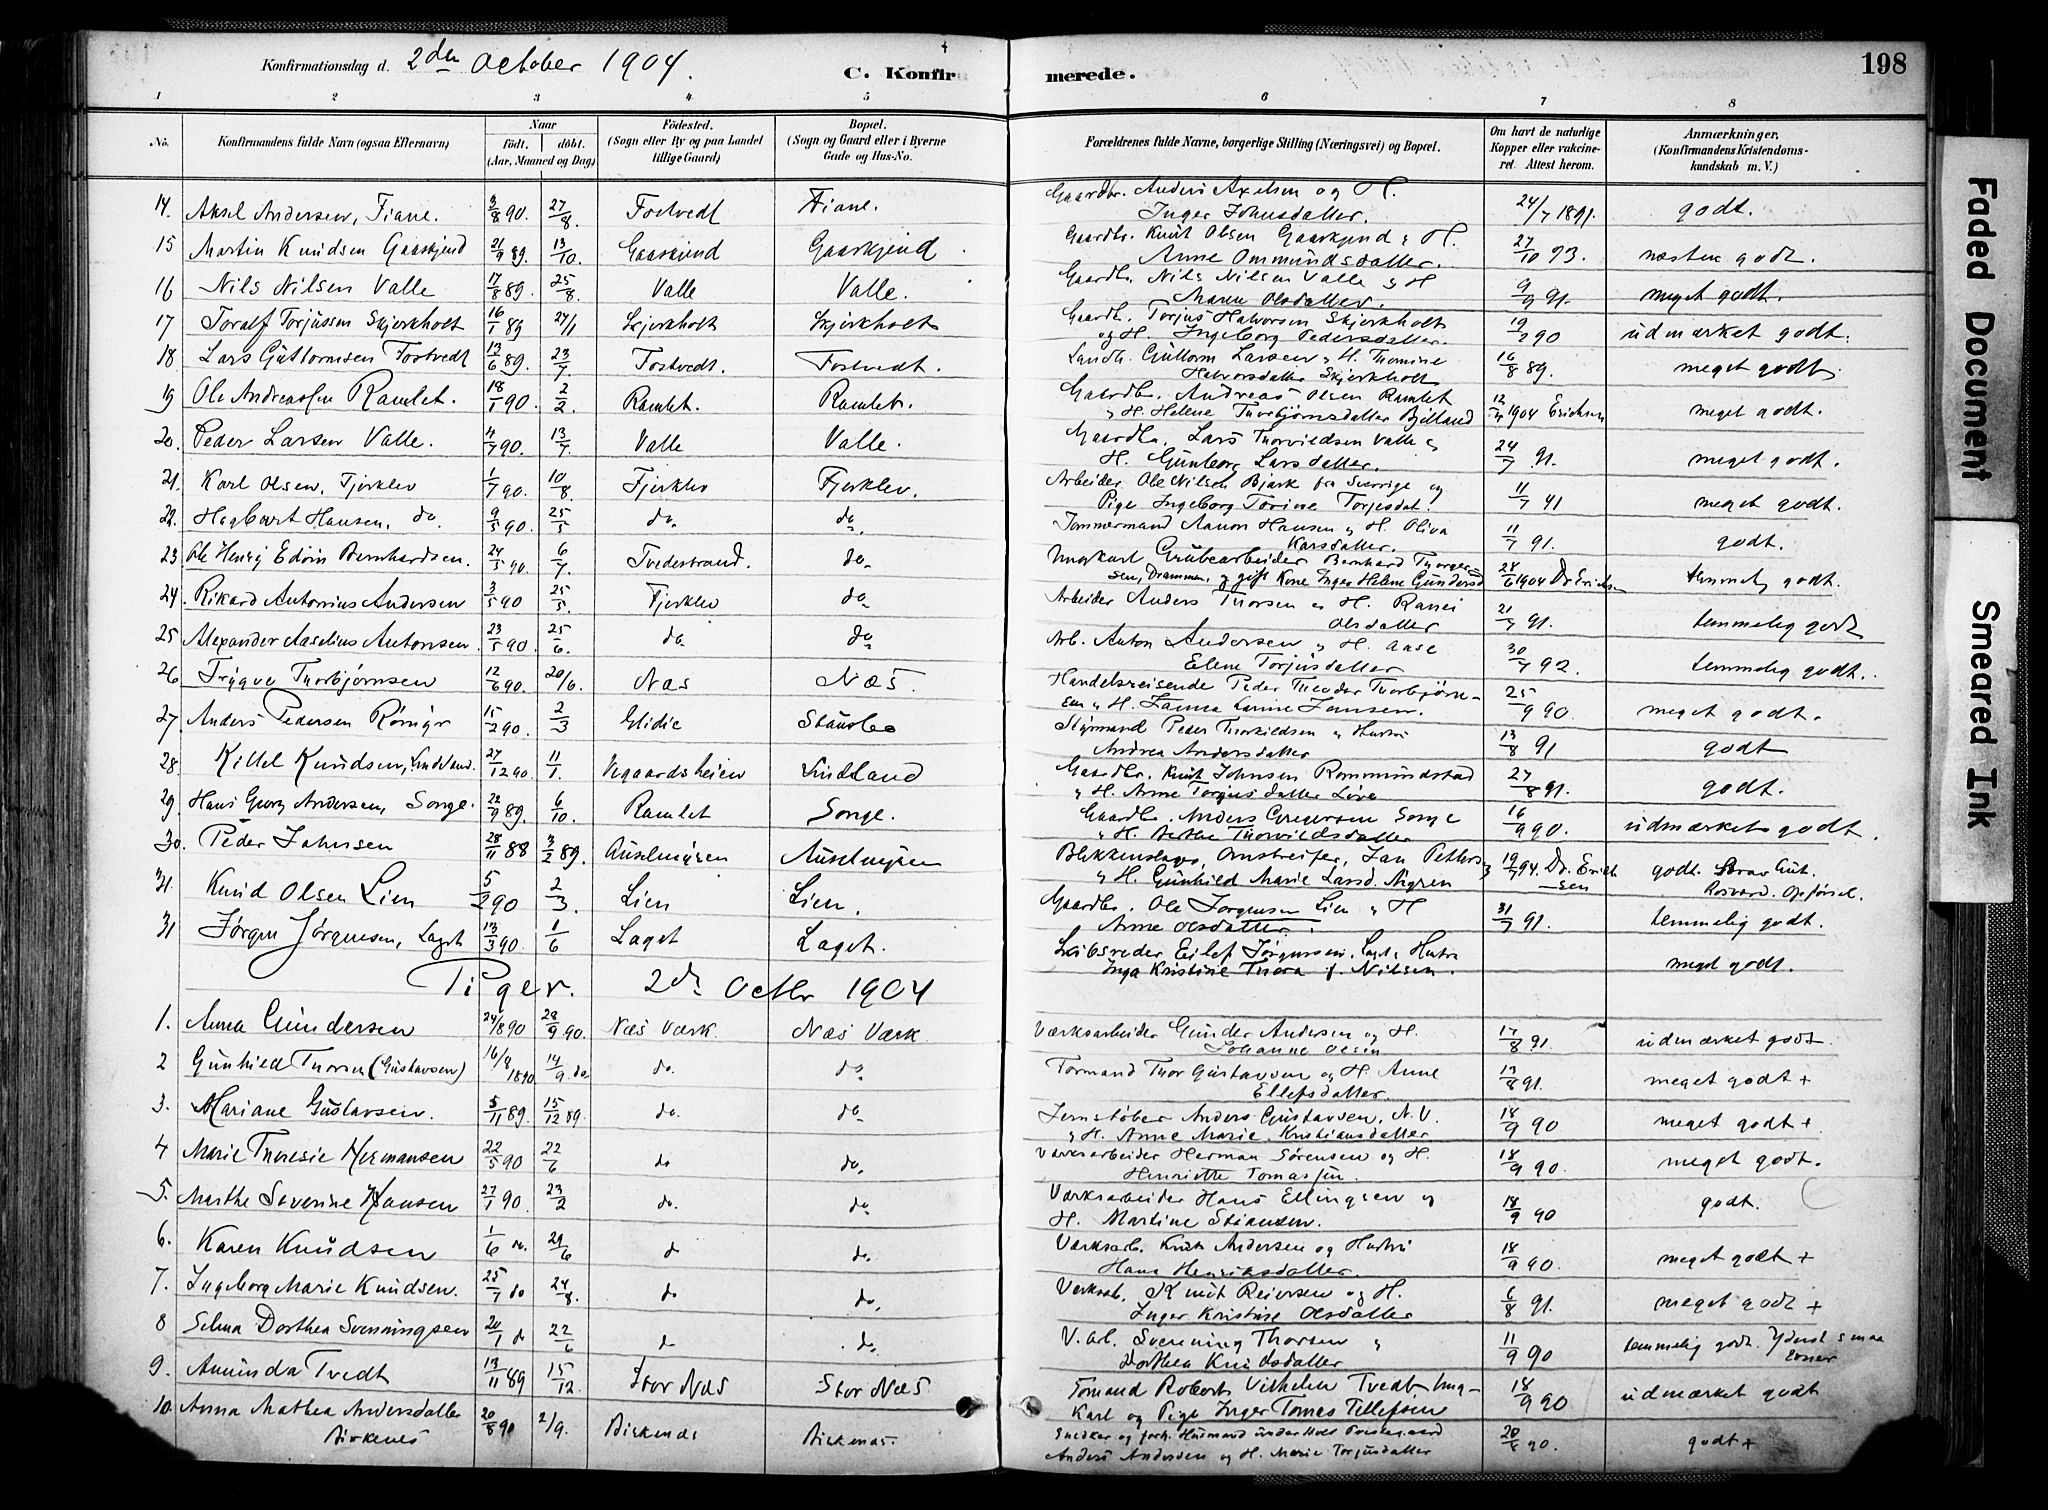 Konfirmationsdag d. 2den October 1904. C. Konfirmerede. 198
1 2 3 4 5 6 7 8
No. Konfirmandens fulde Navn (ogsaa Efternavn) Naar født. døbt. (Aar, Maaned og Dag) Fødested. (Sogn eller By og paa Landet tillige Gaard) Bopæl. (Sogn og Gaard eller i Byerne Gade og Hus-No. Forældrenes fulde Navne, borgerlige Stilling (Næringsvei) og Bopæl. Om havt de naturlige Kopper eller vakcineret. Attest herom. Anmærkninger. (Konfirmandens Kristendomskundskab m. V.)
14. Aksel Andersen, Fiane. 3/8 90. 27/8. Fostvedt Fiane. Gaardbr. Anders Axelsen og H. Inger Johnsdatter. 24/7 1891. godt.
15 Martin Knudsen Gaaskjend 21/9 89. 13/10. Gaaskjend Gaaskjend. Gaardbr. Knut Olsen Gaaskjend & H. Anne Ommundsdatter. 27/10 93. næsten godt.
16 Nils Nilsen Valle 17/8 89. 25/8. Valle Valle. Gaardb. Nils Nilsen Valle & H Maren Olsdatter. 9/9 91. meget godt.
17 Toralf Torjussen Skjerkholt 16/1 89 24/1 Skjerkholt Skjerkholt Gaardb. Torjus Halvorsen Skjerkholt og H. Ingeborg Pedersdatter. 19/2 90 udmærket godt.
18 Lars Guttormsen Fostvedt 13/6 89. 23/7 Fostvedt. Fostvedt. Landh. Guttorm Larsen & H. Thomine Halvorsdatter Skjerkholt 16/8 89. meget godt.
19 Ole Andreassen Ramlet. 18/1 90. 2/2. Ramlet. Ramlet. Gaardb. Andreas Olsen Ramlet & H. Helene Thorbjørnsdatter Bjelland 12/7 1904 Erichsen meget godt.
20. Peder Larsen Valle. 4/7 90. 13/7. Valle Valle. Gaardb. Lars Thorvildsen Valle & H. Gunborg Larsdatter. 24/7 91. meget godt.
21. Karl Olsen, Fjerklev 1/7 90. 10/8. Fjerklev Fjerklev. Arbeider Ole Nilsen Bjark fra Sverige og Pige Ingeborg Torine Torjesdat. 11/7 91 meget godt.
22. Hagbart Hansen, do 9/5 90. 25/5 do. do. Tømmermand Aanon Hansen & H. Oliva Larsdatter. 11/7 91. godt.
23 Ole Henrij Edvin Bernhardsen. 24/5 90. 6/7. Tvedestrand. do. Ungkarl Grubearbeider Bernhard Thorgersen, Drammen, og gift Kone Inger Helene Gundersd 28/6 1904 Dr Erichsen temmelig godt.
24. Rikard Antonius Andersen 3/5 90 25/5. Fjerklev do. Arbeider Anders Thorsen & H. Ranei Olsdatter 21/7 91. temmelig godt
25 Alexander Aaselius Antonsen. 23/5 90. 25/6. do. do. Arb. Anton Andersen & H. Aase Elene Torjusdatter 30/7 92. temmelig godt.
26 Trygve Thorbjørnsen 12/6 90. 20/6. Næs Næs. Handelsreisende Peder Theodor Thorbjørnsen & H. Janna Janne Jansen. 25/9 90. meget godt.
27, Anders Pedersen Rønigr 15/2 90. 2/3 Glidie Stausbo Styrmand Peder Thorkildsen & Hustru Andrea Andersdatter 13/8 91 godt
28 Kittel Knudsen, Lindland. 27/12 90. 11/1. Vegaardsheien Lindland Gaardbr. Knut Johnsen Rommundstad & H. Anne Torjusdatter Løve 27/8 91. godt.
29 Hans Georg Andersen, Songe. 22/9 89. 6/10. Ramlet Songe. Gaardb. Anders Gregersen Songe & H. Birthe Thorvildsdatter 16/9 90. udmærket godt.
30. Peder Johnsen 28/11 88 3/2 89. Auselmyren Auselmyren Blikkenslager, Omstreifer, Jan Petters & H. Gunhild Marie Larsd. Nygren 19/7 94. Dr. Erichsen godt. Brav Gut. Rosværd. Opførsel.
31. Knud Olsen Lien 5/2 90 2/3. Lien Lien. Gaardbr. Ole Jørgensen Lien & H Anne Olsdatter. 31/7 91. temmelig godt.
31 Jørgen Jørgensen, Laget 13/3 90. 1/6 Laget Laget. Skibsreder Eilef Jørgensen, Laget, Hustru Inga Kristine Thora f. Nilsen. meget godt.
Piger. 2den Octbr 1904
1. Anna Gundersen 24/8 90 28/9 90. Næs Værk. Næs Værk. Værksarbeider Gunder Andersen og H. Johanne Olsen 17/8 91. udmærket godt.
2 Gunhild Thorsen (Gustavsen) 16/8 1890 14/9. do do. do. Formand Thor Gustavsen og H. Anne Ellefsdatter. 13/8 91. meget godt +
3. Mariane Gustavsen. 5/11 89. 15/12 89. do. do. Jernstøber Anders Gustavsen, N.V. & H. Anne Marie Kristiansdatter 18/9 90 meget godt +
4 Marie Theresie Hermansen 22/5 90 22/6 do do. Værksarbeider Herman Sørensen og H. Henriette Tomassen. 18/9 90. meget godt.
5. Marthe Severine Hansen 27/1 90. 23/2 do. do. Værksarbeider Hans Ellingsen og H. Martine Stiansen. 18/9 90 godt.
6. Karen Knudsen 1/6 do. 29/6 do do. Værksarb. Knut Andersen og Hustru Hana Henriksdatter. 18/9 90. meget godt +
7. Ingeborg Marie Knudsen. 25/7 do 24/8. do do. Værksarb. Knut Reiersen og H. Inger Kristine Olsdatter 6/8 91. meget godt +
8 Selma Dorthea Svenningsen 20/1 do 22/6 do do. V. arb. Svenning Thorsen & Dorthea Knudsdatter 11/9 90 temmelig godt. Yderst smaa Evner
9. Amunda Tvedt 13/11 89 15/12. Stor Næs Stor Næs. Formand Robert Vilhelm Tvedt Ungkarl og Pige Inger Tomas Tellefsen 18/9 90 udmærket godt
10. Anna Mathea Andersdatter Birkenes 20/8 90 2/9. Birkenæs Birkenæs. Snedker og forh. Husmand under Holt Prestegaard Anders Andersen og H. Marie Torjusdatter 20/8 90. godt +
Faded Document
Smeared Ink